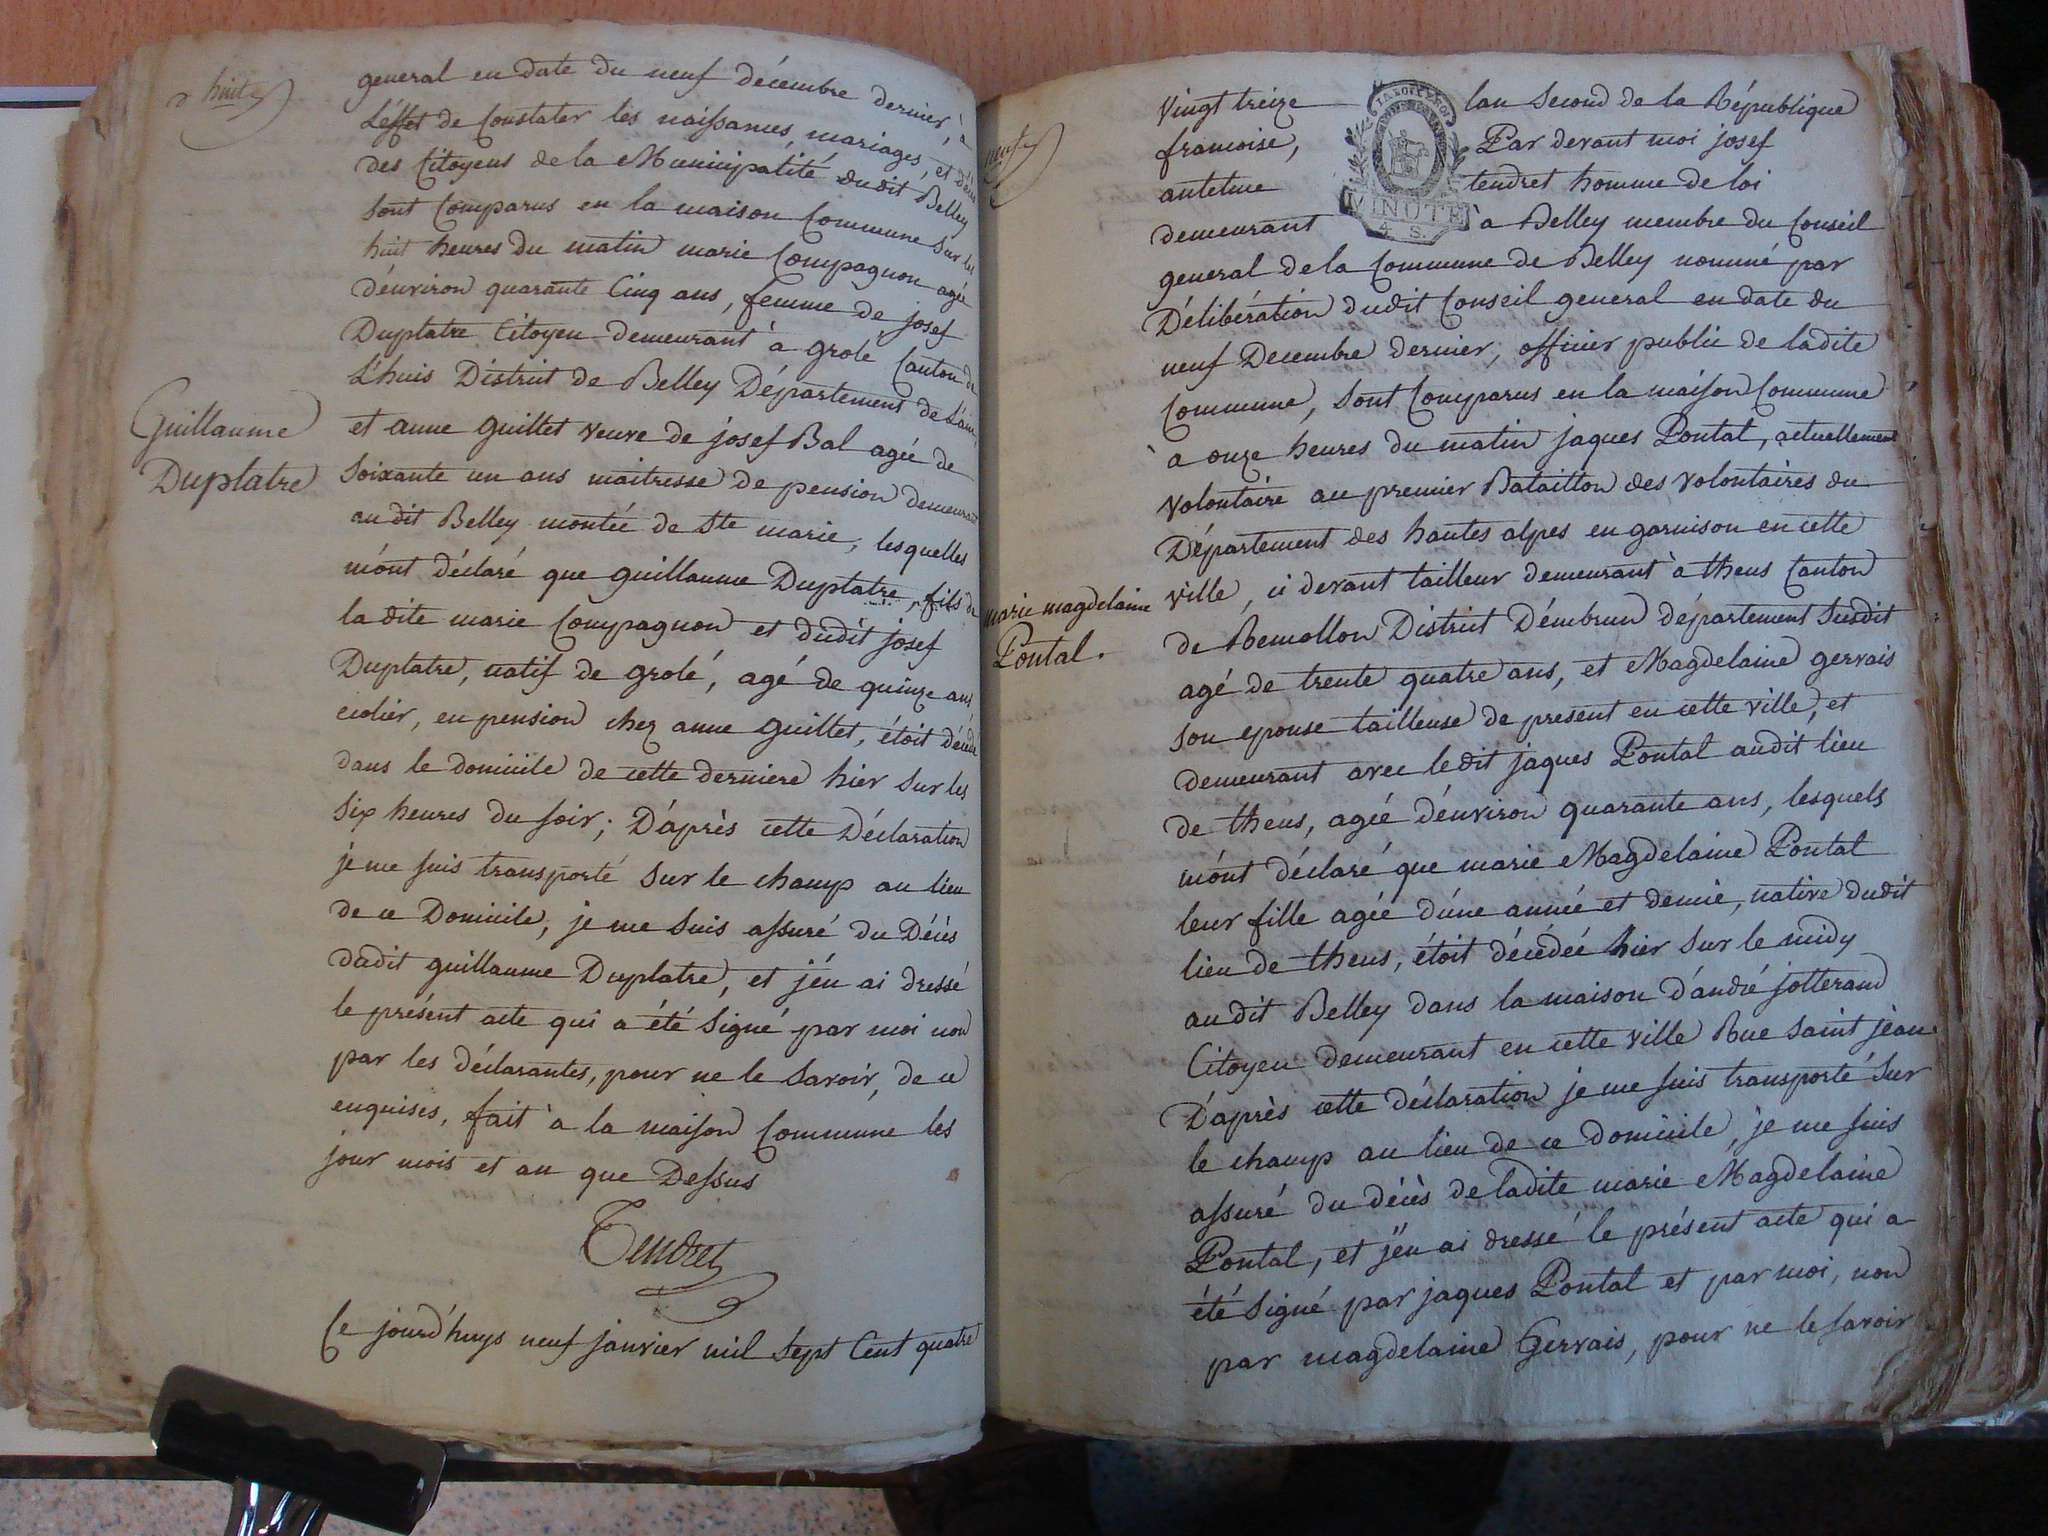 huit
general en date du neuf décembre dernier, à
L'éffet de Constater les naissances, mariages, et décès
des Citoyens de la Municipalité dudit Belley
sont Comparus en la maison Commune sur les
huit heures du matin marie Compagnon agée
d'énviron quarante Cinq ans, femme de josef
Duplatre Citoyen demeurant à grole Canton de
L'huis District de Belley Département de L'ain,
Guillaume
Duplatre
et anne guillet veuve de josef Bal agée de
soixante un ans maitresse de pension demeurant
audit Belley montée de Ste marie, lesquelles
m'ónt déclaré que guillaume Duplatre, fils de
la dite marie Compagnon et dudit josef
Duplatre, natif de grolé, agé de quinze ans
ecolier, en pension chez anne guillet, étoit décédé
dans le domicile de cette derniere hier sur les
six heures du soir; D'áprès cette Déclaration
je me suis transporté sur le champ au lieu
de ce Domicile, je me suis assuré du Décès
dudit guillaume Duplatre, et j'én ai dressé
le présent acte qui a été signé par moi non
par les déclarantes, pour ne le savoir, de ce
enquises, fait à la maison Commune les
jour mois et an que Dessus
Tendret
Ce jourd'huys neuf janvier mil sept Cent quatre
neuf
vingt treize lan second de la République
francoise, Par devant moi josef
antelme tendret homme de loi
demeurant à Belley membre du Conseil
LA LOI ET LE ROI
MINUTE
4 S.
general de la Commune de Belley nommé par
Délibération dudit Conseil general en date du
neuf Decembre dernier, officier public de ladite
Commune, sont Comparus en la maison Commune
à onze heures du matin jaques Pontal, actuellement
volontaire au premier Bataillon des volontaires du
Département des hautes alpes en garnison en cette
ville, ci devant tailleur demeurant à theus Canton
marie magdelaine
Pontal.
de Remollon District D'émbrun département susdit
agé de trente quatre ans, et Magdelaine gervais
son epouse tailleuse de present en cette ville, et
demeurant avec ledit jaques Pontal audit lieu
de theus, agée d'énviron quarante ans, lesquels
m'ónt déclaré que marie Magdelaine Pontal
leur fille agée d'úne année et demie, native dudit
lieu de theus, étoit décédeé hier sur le midy
audit Belley dans la maison d'ándré jotterand
Citoyen demeurant en cette ville Rue saint jean
D'áprès cette déclaration je me suis transporté sur
le champ au lieu de ce domicile, je me suis
assuré du décès de ladite marie Magdelaine
Pontal, et j'én ai dressé le présent acte qui a
été signé par jaques Pontal et par moi, non
par magdelaine Gervais, pour ne le savoir